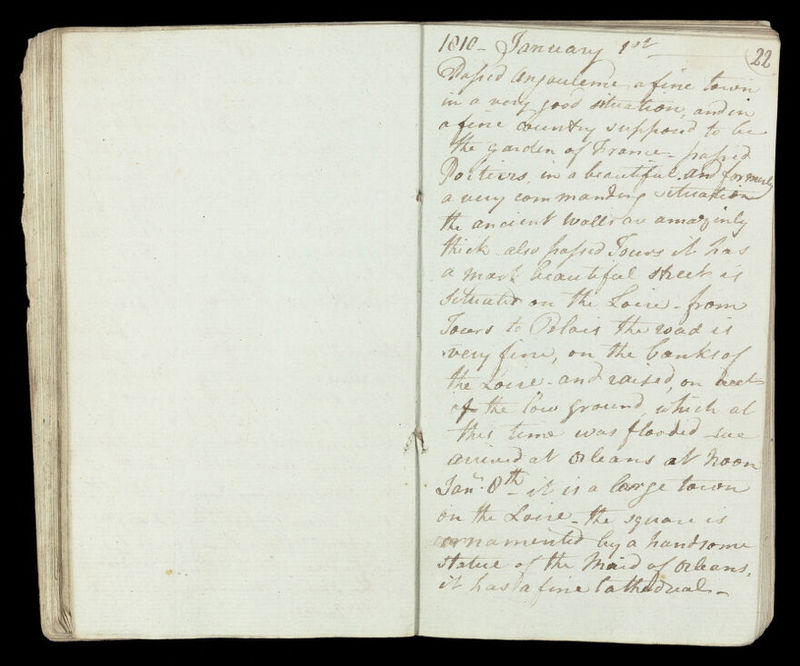 1810 - January 1st
22
Passed Angouleme, a fine town
in a very good situation, and in
a fine Country supposed to be
the garden of France - passed
Poitiers, in a beautiful and formerly
a very commanding situation
the ancient walls are amazingly
thick also passed Tours it has
a most beautiful street is
Situated on the Loire - from
Tours to Blois the road is
very fine, on the banks of
the Loire - and raised, on
of the low ground, which at
this time was flooded - we
arrived at Orleans at Noon
Jany. 8th - it is a large town
on the Loire - the square is
ornamented by a handsome
statue of the Maid of Orleans,
it has a fine Cathedral -